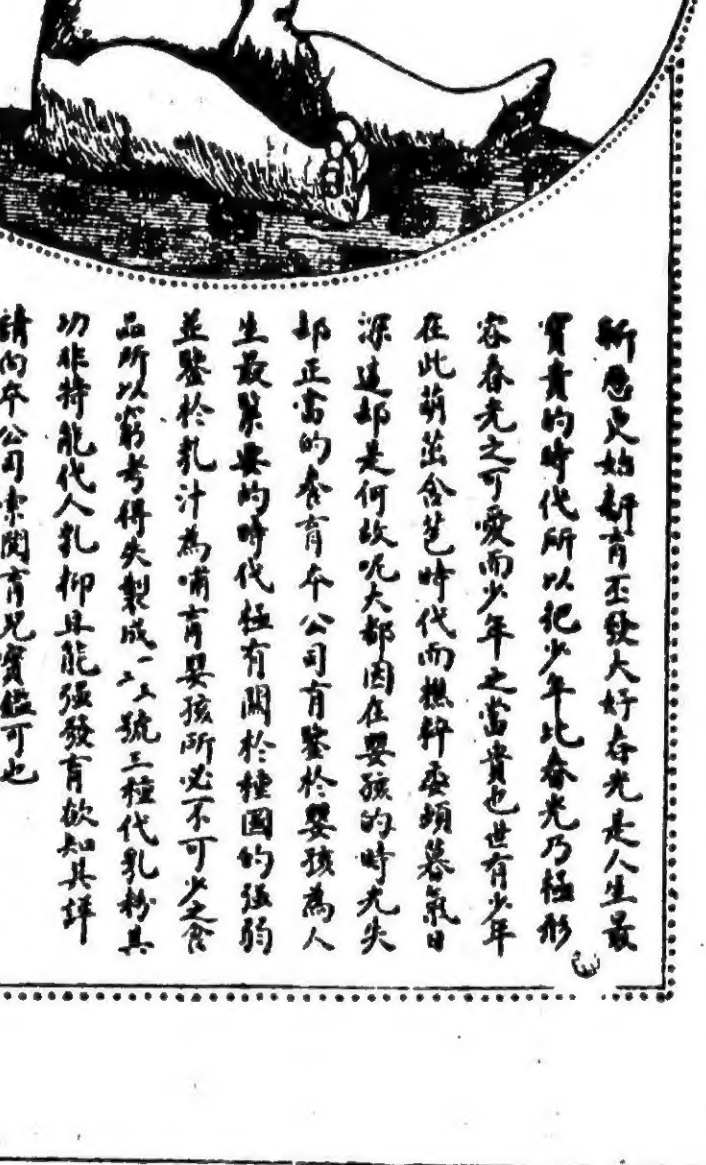 新歷更始新育丕發大好春光是人生最
寶貴的時代所以把少年比春光乃極形
容春光之可愛而少年之當貴也世有少年
在此萌茁含芭時代而憔悴委頓暮氣日
深這却是何故呢大都因在嬰孩的時光失
却正當的養育本公司有鑒於嬰孩為人
生最緊要的時代極有關於種國的强弱
並鑒於乳汁為哺育嬰孩所必不可少之食
品所以窮考得失製成一二三號三種代乳粉其
功非特能代人乳抑且能强發育欲知其詳
請向本公司索閱育兒寶鑑可也